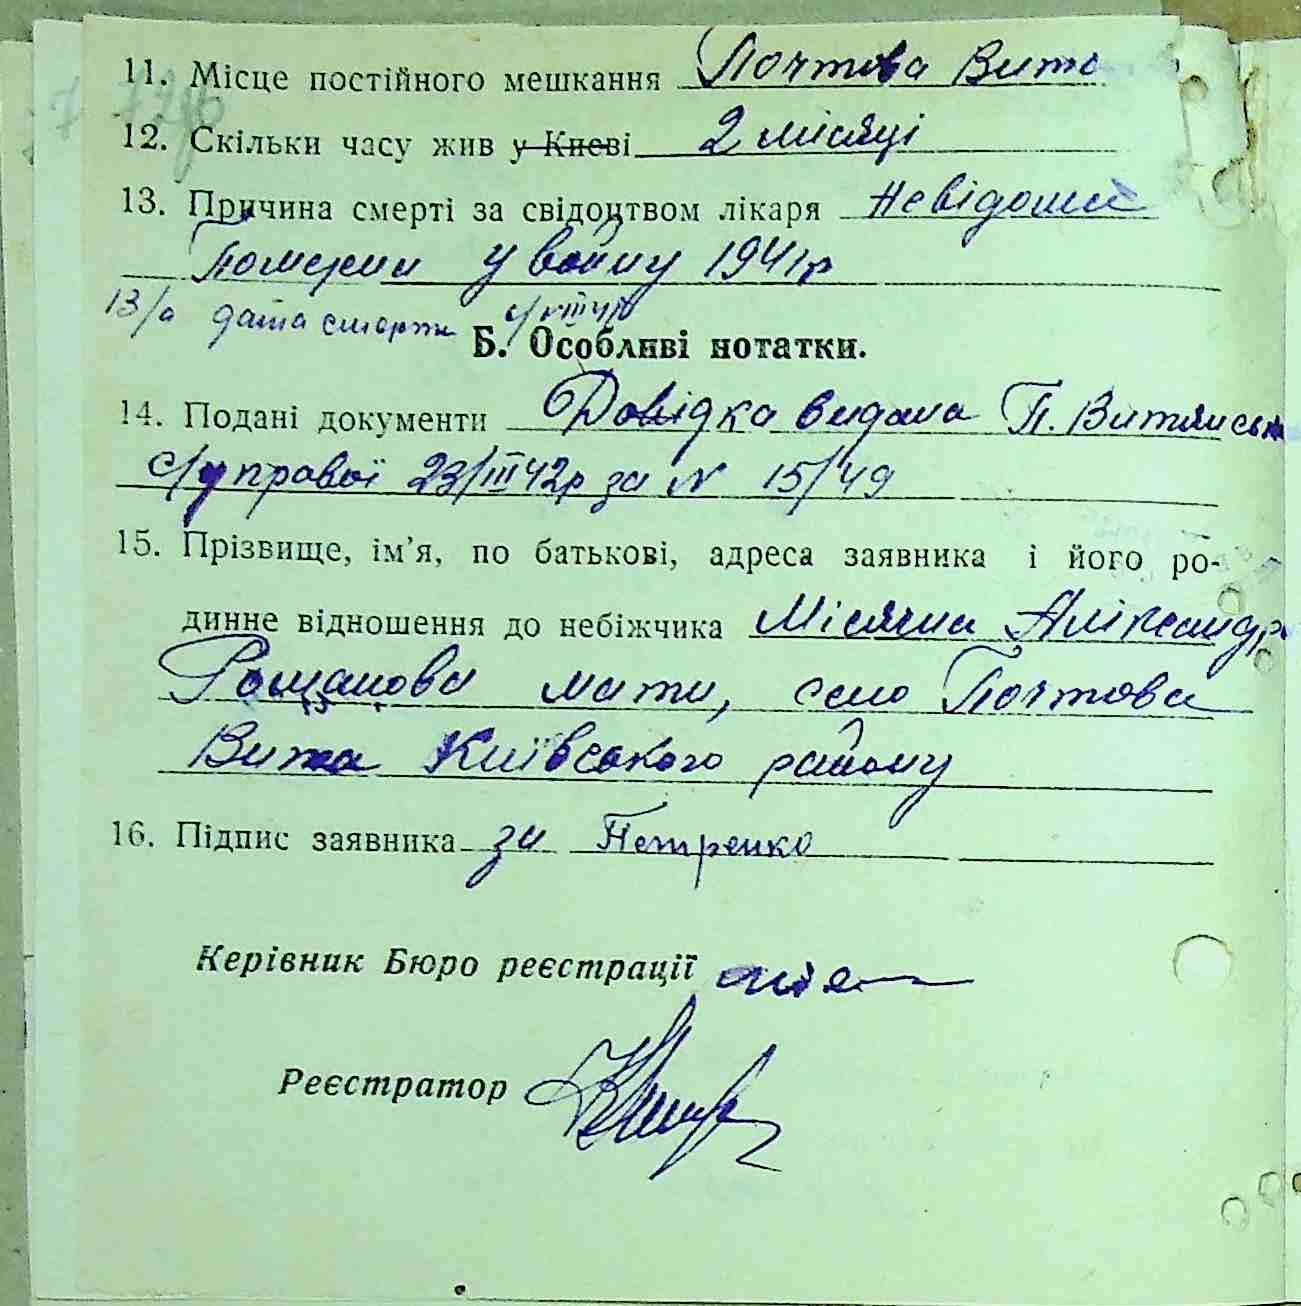 11. Місце постійного мешкання Почтова Вита
12. Скільки часу жив у Києві 2 місяці
13. Причина смерті за свідоцтвом лікаря Невідома
Померли у войну 1941р
13/а дата смерти
Б. Особливі нотатки.
14. Подані документи Довідка видана П. Витянськ
с/управої 23/III 42р за N 15/49
15. Прізвище, ім’я, по батькові, адреса заявника і його ро-
динне відношення до небіжчика Місячна Аліксандр
мати, село Почтова
Вита Київського району
16. Підпис заявника за Петренко
Керівник Бюро реєстрації
Реєстратор